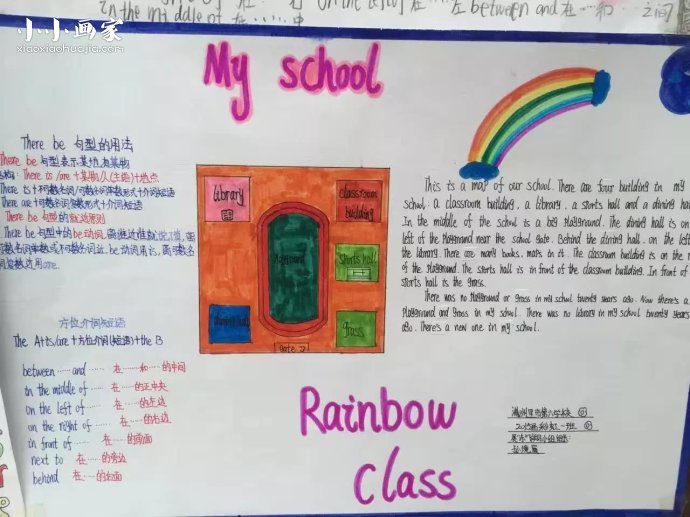 on the left of 在……左 between and 在…和……之间
in the middle of 在……中
小小画家
xiaoxiaohuajia.com
My school
There be 句型的用法
There be 句型表示某地有某物
There is/are+某物/人(主语)+地点
There is+不可数名词/可数名词单数形式+介词短语
There are+可数名词复数形式+介词短语
There be 句型的就近原则
There be 句型中的be动词
数时用are.
方位介词短语
The A+is/are+方位介词(短语)+the B
between……and…… 在……和……的中间
in the middle of …… 在……的正中央
on the left of …… 在……的左边
on the right of …… 在……的右边
in front of …… 在……的前面
next to 在……的旁边
behind 在……的后面
library
classroom
building
Playground
sports hall
dining hall
grass
Gate
This is a map of our school. There are four building in my
school: a classroom building, a library, a storts hall and a dining ha
In the middle of the school is a big Playground. The dining hall is on
left of the Playground near the school gate. Behind the dining hall, on the left
the library. There are many books, maps in it. The classroom building is on the r
of the Playground. The storts hall is in front of the classroom building. In front of
storts hall is the grass.
There was no Playground or grass in my school twenty years ago. Now there's a
Playground and grass in my school. There was no library in my school twenty years
ago. There's a new one in my school.
Rainbow
Class